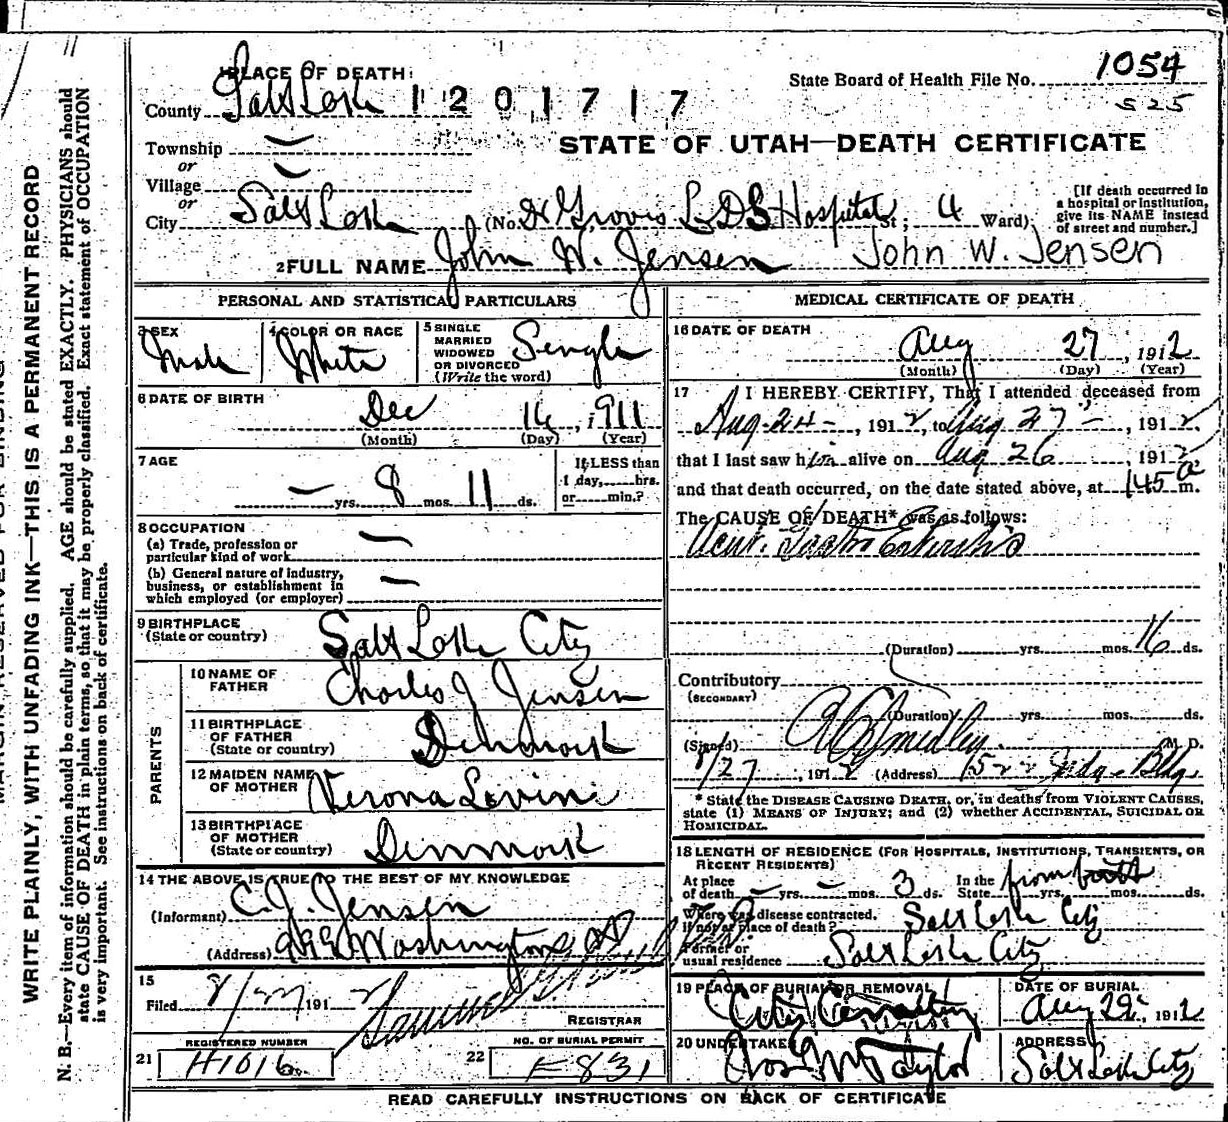 PLACE OF DEATH: State Board of Health File No. 1054
County Salt Lake 1201717 S25
Township — STATE OF UTAH—DEATH CERTIFICATE
or
Village —
or
City Salt Lake (No. Dr Groves L D S Hospital St; 4 Ward) [If death occurred in a hospital or institution, give its NAME instead of street and number.]
2 FULL NAME John W. Jensen John W. Jensen
PERSONAL AND STATISTICAL PARTICULARS
3 SEX Male 4 COLOR OR RACE White 5 SINGLE MARRIED WIDOWED OR DIVORCED (Write the word) Single
6 DATE OF BIRTH Dec 16, 1911
(Month) (Day) (Year)
7 AGE — yrs. 8 mos. 11 ds. If LESS than 1 day, hrs. or min.?
8 OCCUPATION
(a) Trade, profession or particular kind of work —
(b) General nature of industry, business, or establishment in which employed (or employer) —
9 BIRTHPLACE
(State or country) Salt Lake City
PARENTS
10 NAME OF FATHER Charles J Jensen
11 BIRTHPLACE OF FATHER (State or country) Denmark
12 MAIDEN NAME OF MOTHER Verona Levine
13 BIRTHPLACE OF MOTHER (State or country) Denmark
14 THE ABOVE IS TRUE TO THE BEST OF MY KNOWLEDGE
(Informant) C. J. Jensen
(Address) Washington
15
Filed 8/27 1912
REGISTRAR
REGISTERED NUMBER
21 H1016
NO. OF BURIAL PERMIT
22 E831
MEDICAL CERTIFICATE OF DEATH
16 DATE OF DEATH
Aug 27, 1912
(Month) (Day) (Year)
17 I HEREBY CERTIFY, That I attended deceased from
Aug. 24 -, 1912, to Aug 27 -, 1912.
that I last saw him alive on Aug 26 1912
and that death occurred, on the date stated above, at 145 a m.
The CAUSE OF DEATH* was as follows:
Acut. Gastro Enteritis
(Duration) yrs. mos. 16 ds.
Contributory
(SECONDARY)
(Duration) yrs. mos. ds.
(Signed) Smedley M. D.
8/27, 1912 (Address) Bldg
* State the DISEASE CAUSING DEATH, or, in deaths from VIOLENT CAUSES, state (1) MEANS OF INJURY; and (2) whether ACCIDENTAL, SUICIDAL OR HOMICIDAL.
18 LENGTH OF RESIDENCE (FOR HOSPITALS, INSTITUTIONS, TRANSIENTS, OR RECENT RESIDENTS)
At place of death — yrs. — mos. 3 ds. In the State from birth yrs. mos. ds.
Where was disease contracted, if not at place of death? Salt Lake City
Former or usual residence Salt Lake City
19 PLACE OF BURIAL OR REMOVAL City Cemetery
DATE OF BURIAL Aug 1912
20 UNDERTAKER Taylor
ADDRESS Salt Lake City
READ CAREFULLY INSTRUCTIONS ON BACK OF CERTIFICATE
WRITE PLAINLY, WITH UNFADING INK—THIS IS A PERMANENT RECORD
N. B.—Every item of information should be carefully supplied. AGE should be stated EXACTLY. PHYSICIANS should
state CAUSE OF DEATH in plain terms, so that it may be properly classified. Exact statement of OCCUPATION
is very important. See instructions on back of certificate.